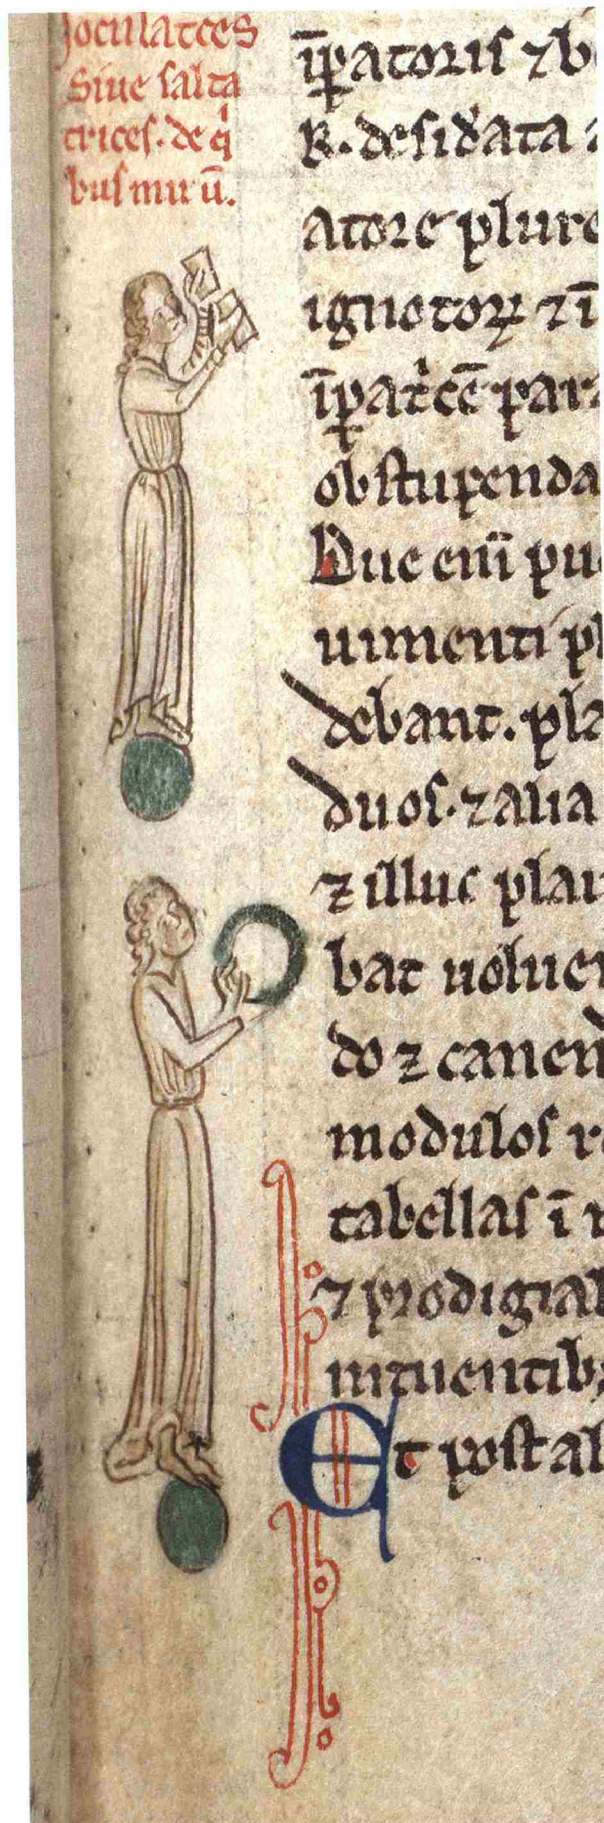 Joculatrces
Siue salta
trices. de q̇
bus mir ū.
īp̄atoris ⁊ b
R. desid̓ata
atore plure
ignotoꝝ ⁊ ī
īp̄at̓cē para
obstupenda
Due enī pu
uimenti pl
debant. pla
duos. ⁊ alia
⁊ illuc plau
bat uoluen
do ⁊ canen
modulos re
tabellas ī
⁊ prodigial
intuentibꝫ
Et post al